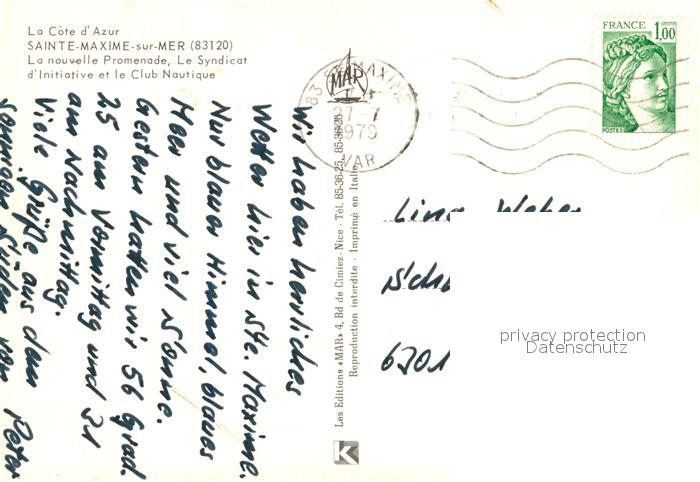 La Côte d'Azur
SAINTE-MAXIME-sur-MER (83120)
La nouvelle Promenade, Le Syndicat
d'Initiative et le Club Nautique
FRANCE
1,00
POSTES
83 STE MAXIME
27-7
1979
VAR
MAR
Wir haben herrliches
Wetter hier in Ste. Maxime.
Nur blauer Himmel, blaues
Meer und viel Sonne.
Gestern hatten wir 56 Grad.
25 am Vormittag und 31
am Nachmittag.
Viele Grüße aus dem
sonnigen Süden von Peter
Les Editions «MAR» 4, Bd de Cimiez - Nice - Tél. 85-36-25
Reproduction interdite - Imprimé en Italie
K
Lina Weber
Sch
6701
privacy protection
Datenschutz